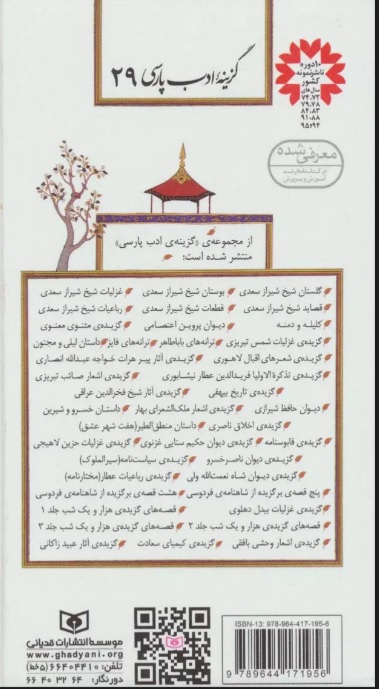 گزینهٔ ادب پارسی ۲۹
۱۰ دوره
ناشر نمونه
کشور
سال‌های
۷۴،۷۳
۷۹،۷۸
۸۴،۸۳
۹۱،۸۸
۹۵،۹۴
معرفی شده
از مجموعه‌ی «گزینه‌ی ادب پارسی»
منتشر شده است:
گلستان شیخ شیراز سعدی بوستان شیخ شیراز سعدی غزلیات شیخ شیراز سعدی
قصاید شیخ شیراز سعدی قطعات شیخ شیراز سعدی رباعیات شیخ شیراز سعدی
کلیله و دمنه دیوان پروین اعتصامی گزیده‌ی مثنوی معنوی
گزیده‌ی غزلیات شمس تبریزی ترانه‌های باباطاهر ترانه‌های فایز داستان لیلی و مجنون
گزیده‌ی شعرهای اقبال لاهوری گزیده‌ی آثار پیر هرات خواجه عبدالله انصاری
گزیده‌ی تذکرة الاولیا فریدالدین عطار نیشابوری گزیده‌ی اشعار صائب تبریزی
گزیده‌ی تاریخ بیهقی گزیده‌ی آثار شیخ فخرالدین عراقی
دیوان حافظ شیرازی گزیده‌ی اشعار ملک‌الشعرای بهار داستان خسرو و شیرین
گزیده‌ی اخلاق ناصری داستان منطق‌الطیر(هفت شهر عشق)
گزیده‌ی قابوسنامه گزیده‌ی دیوان حکیم سنایی غزنوی گزیده‌ی غزلیات حزین لاهیجی
گزیده‌ی دیوان ناصرخسرو گزیده‌ی سیاست‌نامه(سیرالملوک)
گزیده‌ی دیوان شاه نعمت‌الله ولی گزیده‌ی رباعیات عطار(مختارنامه)
پنج قصه‌ی برگزیده از شاهنامه‌ی فردوسی هشت قصه‌ی برگزیده از شاهنامه‌ی فردوسی
گزیده‌ی غزلیات بیدل دهلوی قصه‌های گزیده‌ی هزار و یک شب جلد ۱
قصه‌های گزیده‌ی هزار و یک شب جلد ۲ قصه‌های گزیده‌ی هزار و یک شب جلد ۳
گزیده‌ی اشعار وحشی بافقی گزیده‌ی کیمیای سعادت گزیده‌ی آثار عبید زاکانی
موسسه انتشارات قدیانی
www.ghadyani.org
تلفن: ۶۶۴۰۴۴۱۰ (۵ خط)
دورنگار: ۶۶ ۴۰ ۳۲ ۶۴
ISBN-13: 978-964-417-195-6
9 789644 171956